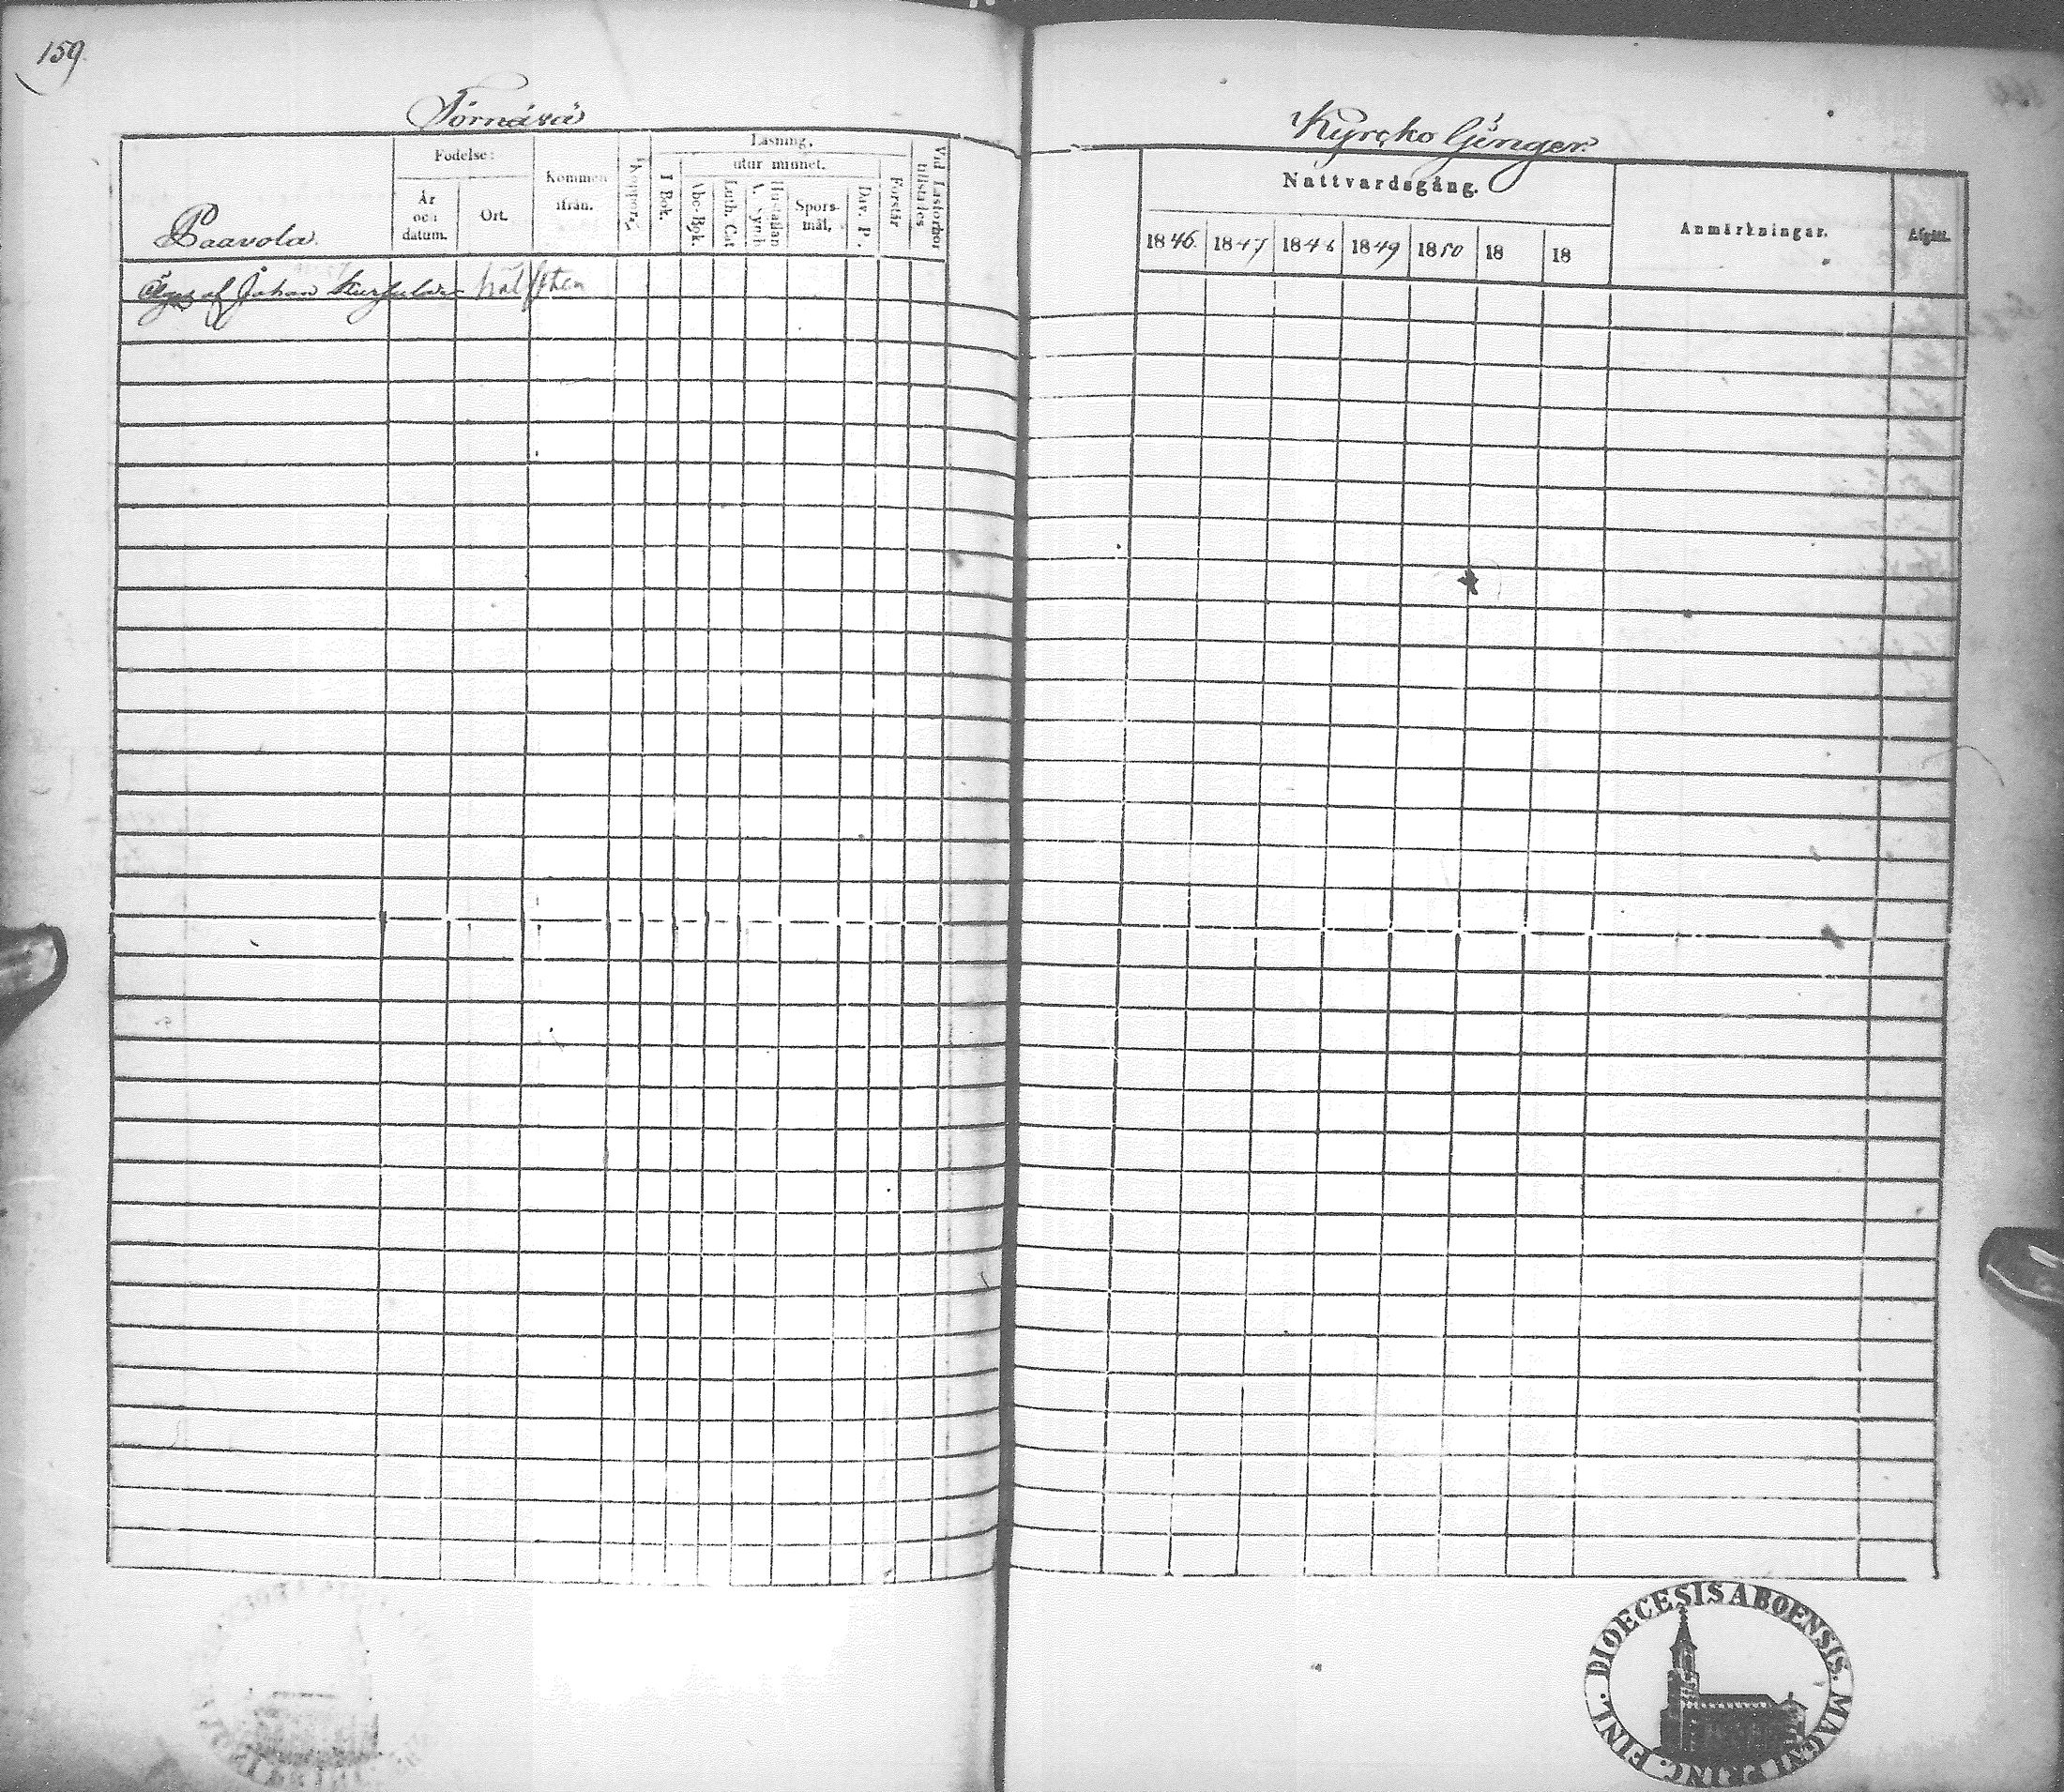 159.
Törnävä
Födelse:
Läsning,
utur minnet.
År
och
datum.
Ort.
Kommen
ifrån.
Koppor,
I Bok.
Abc-Bok.
Luth. Cat
Hustaflan
Spors-
mål,
Dav. P.
Förstår
Vid Läsförhör
tillstädes
Paavola.
Äges af Johan hälften
Kyrcko Gånger.
Nattvardsgång.
1846. 1847 1848 1849 1850 18 18
Anmärkningar.
Afgått.
DIOECESIS ABOENSIS. MAGNI PRINC. FINL.